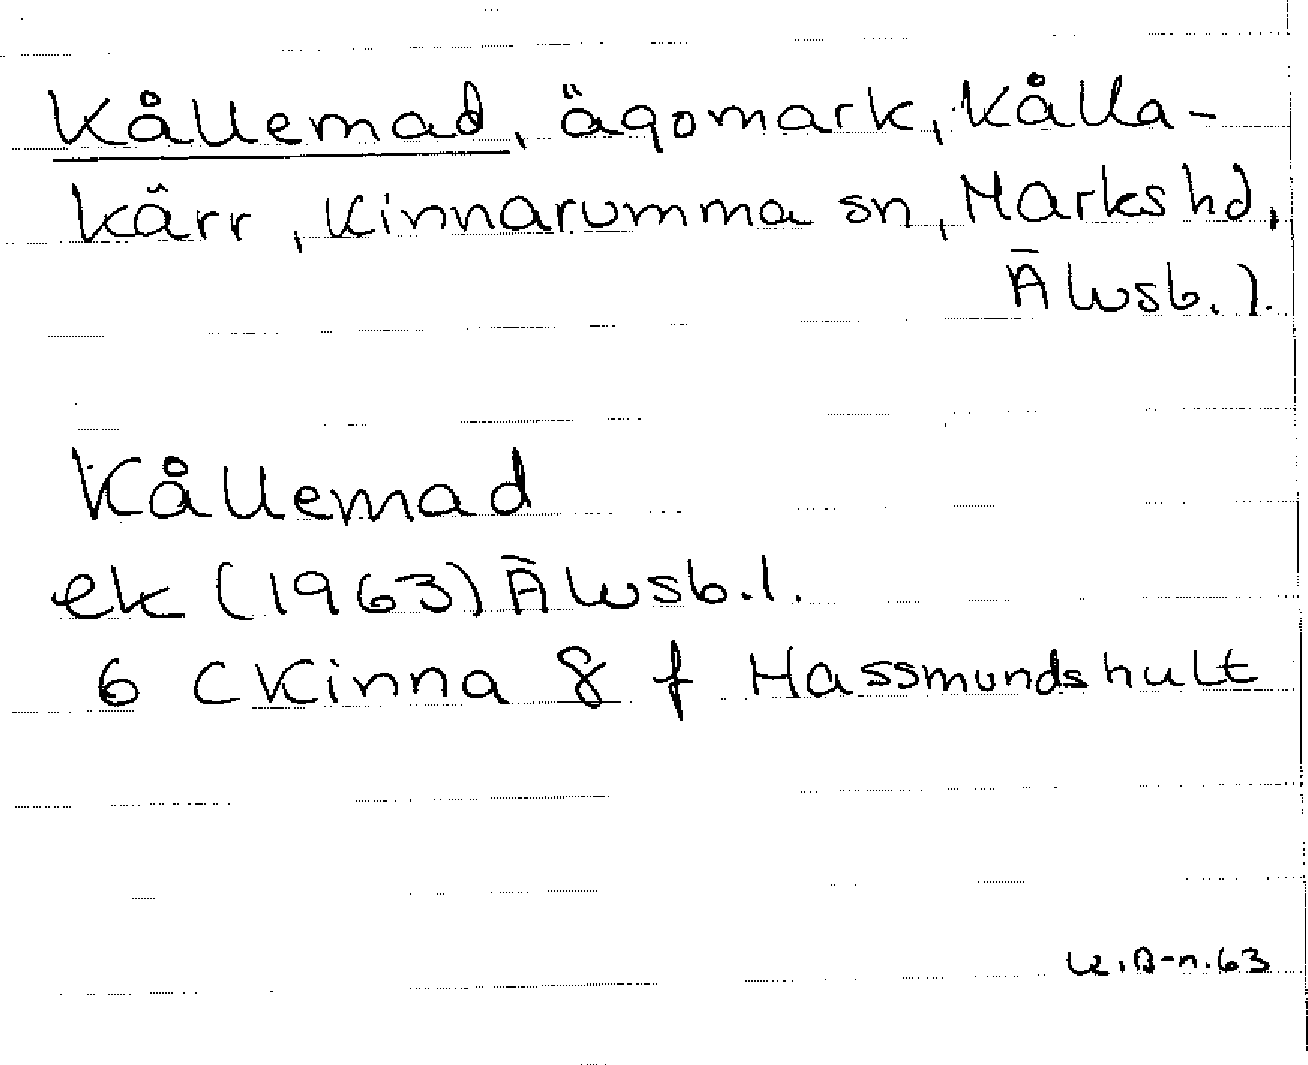 Kållemad, ägomark, Kålla-
kärr, Kinnarumma sn, Marks hd,
Älvsb. l.
Kållemad
ek (1963) Älvsb. l.
6 C Kinna 8 f Hassmundshult
K.B-n.63